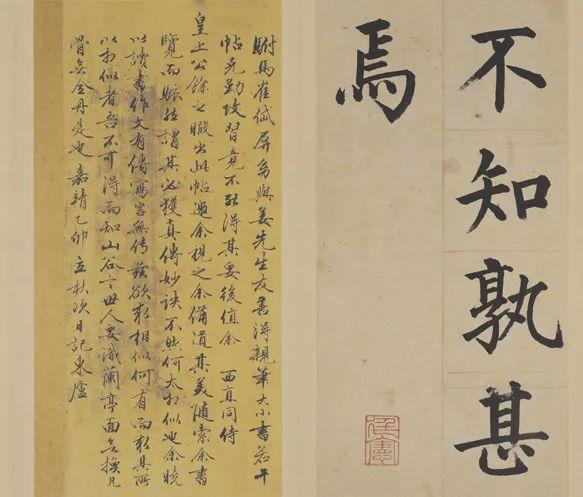 不知孰甚
焉
駙馬崔岱屏舄與姜先生友善得親筆大小書若干
帖克勤攻習竟不能得其妥後值余西直同侍
皇上公餘之暇出此帖邀余視之余備道其美隨索余書
覽而賑然謂其必獲真傳妙訣不然何大相似也余曉
以讀書作文有傳寫字無傳茲欲求相似何有而求其所
以相似者吾不可得而知山谷云世人要識蘭亭面無換凡
骨無金丹是也嘉靖乙卯立秋次日記東廬